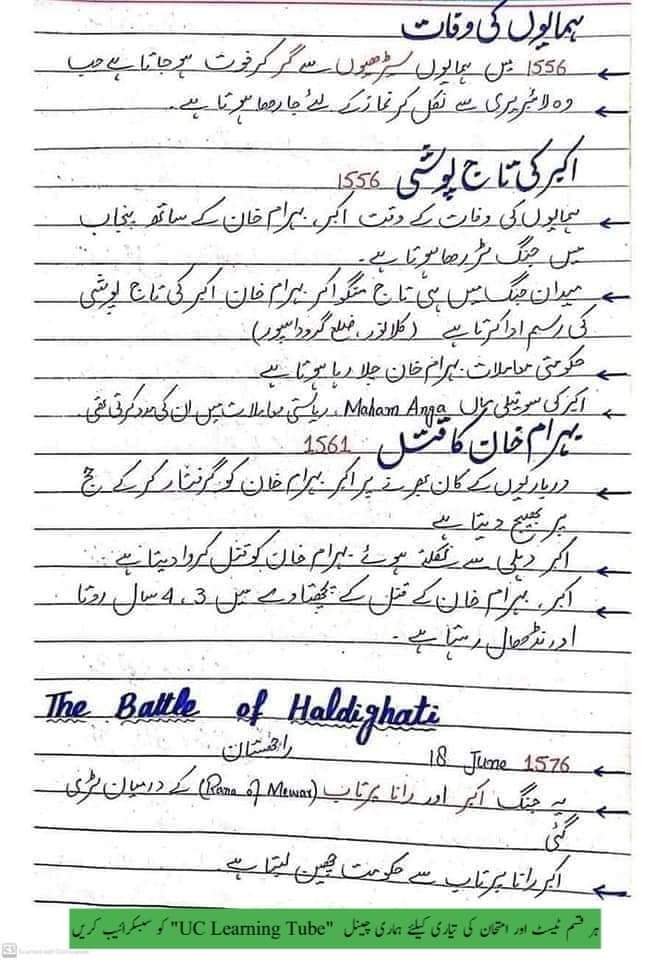 ہمایوں کی وفات
1556 میں ہمایوں سیڑھیوں سے گر کر فوت ہو جاتا ہے جب
وہ لائبریری سے نکل کر نماز کے لئے جا رہا ہوتا ہے۔
اکبر کی تاج پوشی 1556
ہمایوں کی وفات کے وقت اکبر، بہرام خان کے ساتھ پنجاب
میں جنگ لڑ رہا ہوتا ہے۔
میدان جنگ میں ہی تاج منگوا کر بہرام خان اکبر کی تاج پوشی
کی رسم ادا کرتا ہے (کلانور، ضلع گرداسپور)
حکومتی معاملات بہرام خان چلا رہا ہوتا ہے
اکبر کی سوتیلی ماں Maham Anga، ریاستی معاملات میں ان کی مدد کرتی تھی۔
بہرام خان کا قتل 1561
درباریوں کے کان بھرنے پر اکبر بہرام خان کو گرفتار کر کے حج
پر بھیج دیتا ہے
اکبر دہلی سے نکلتے ہوئے بہرام خان کو قتل کروا دیتا ہے
اکبر، بہرام خان کے قتل کے پچھتاوے میں 3، 4 سال روتا
اور نڈھال رہتا ہے۔
The Battle of Haldighati
18 June 1576 راجستان
یہ جنگ اکبر اور رانا پرتاب (Rana of Mewar) کے درمیان لڑی
گئی
اکبر رانا پرتاپ سے حکومت چھین لیتا ہے۔
ہر قسم ٹیسٹ اور امتحان کی تیاری کیلئے ہماری چینل "UC Learning Tube" کو سبسکرائیب کریں